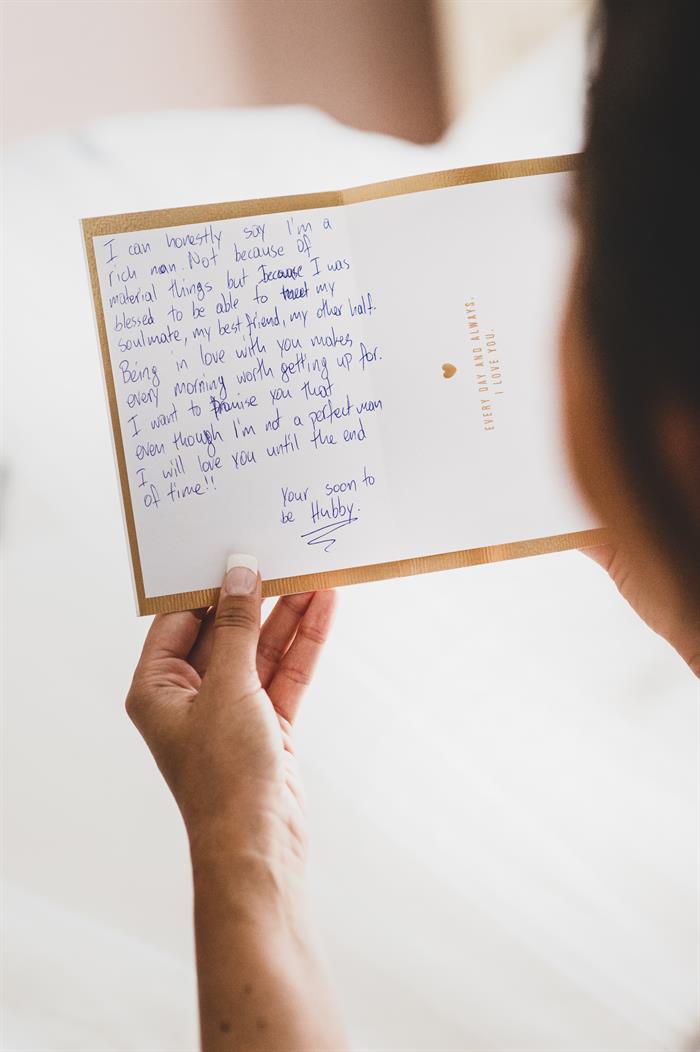 I can honestly say I'm a
rich man. Not because of
material things but because I was
blessed to be able to meet my
soulmate, my best friend, my other half.
Being in love with you makes
every morning worth getting up for.
I want to promise you that
even though I'm not a perfect man
I will love you until the end
of time!!
Your soon to
be Hubby.
EVERY DAY AND ALWAYS,
I LOVE YOU.